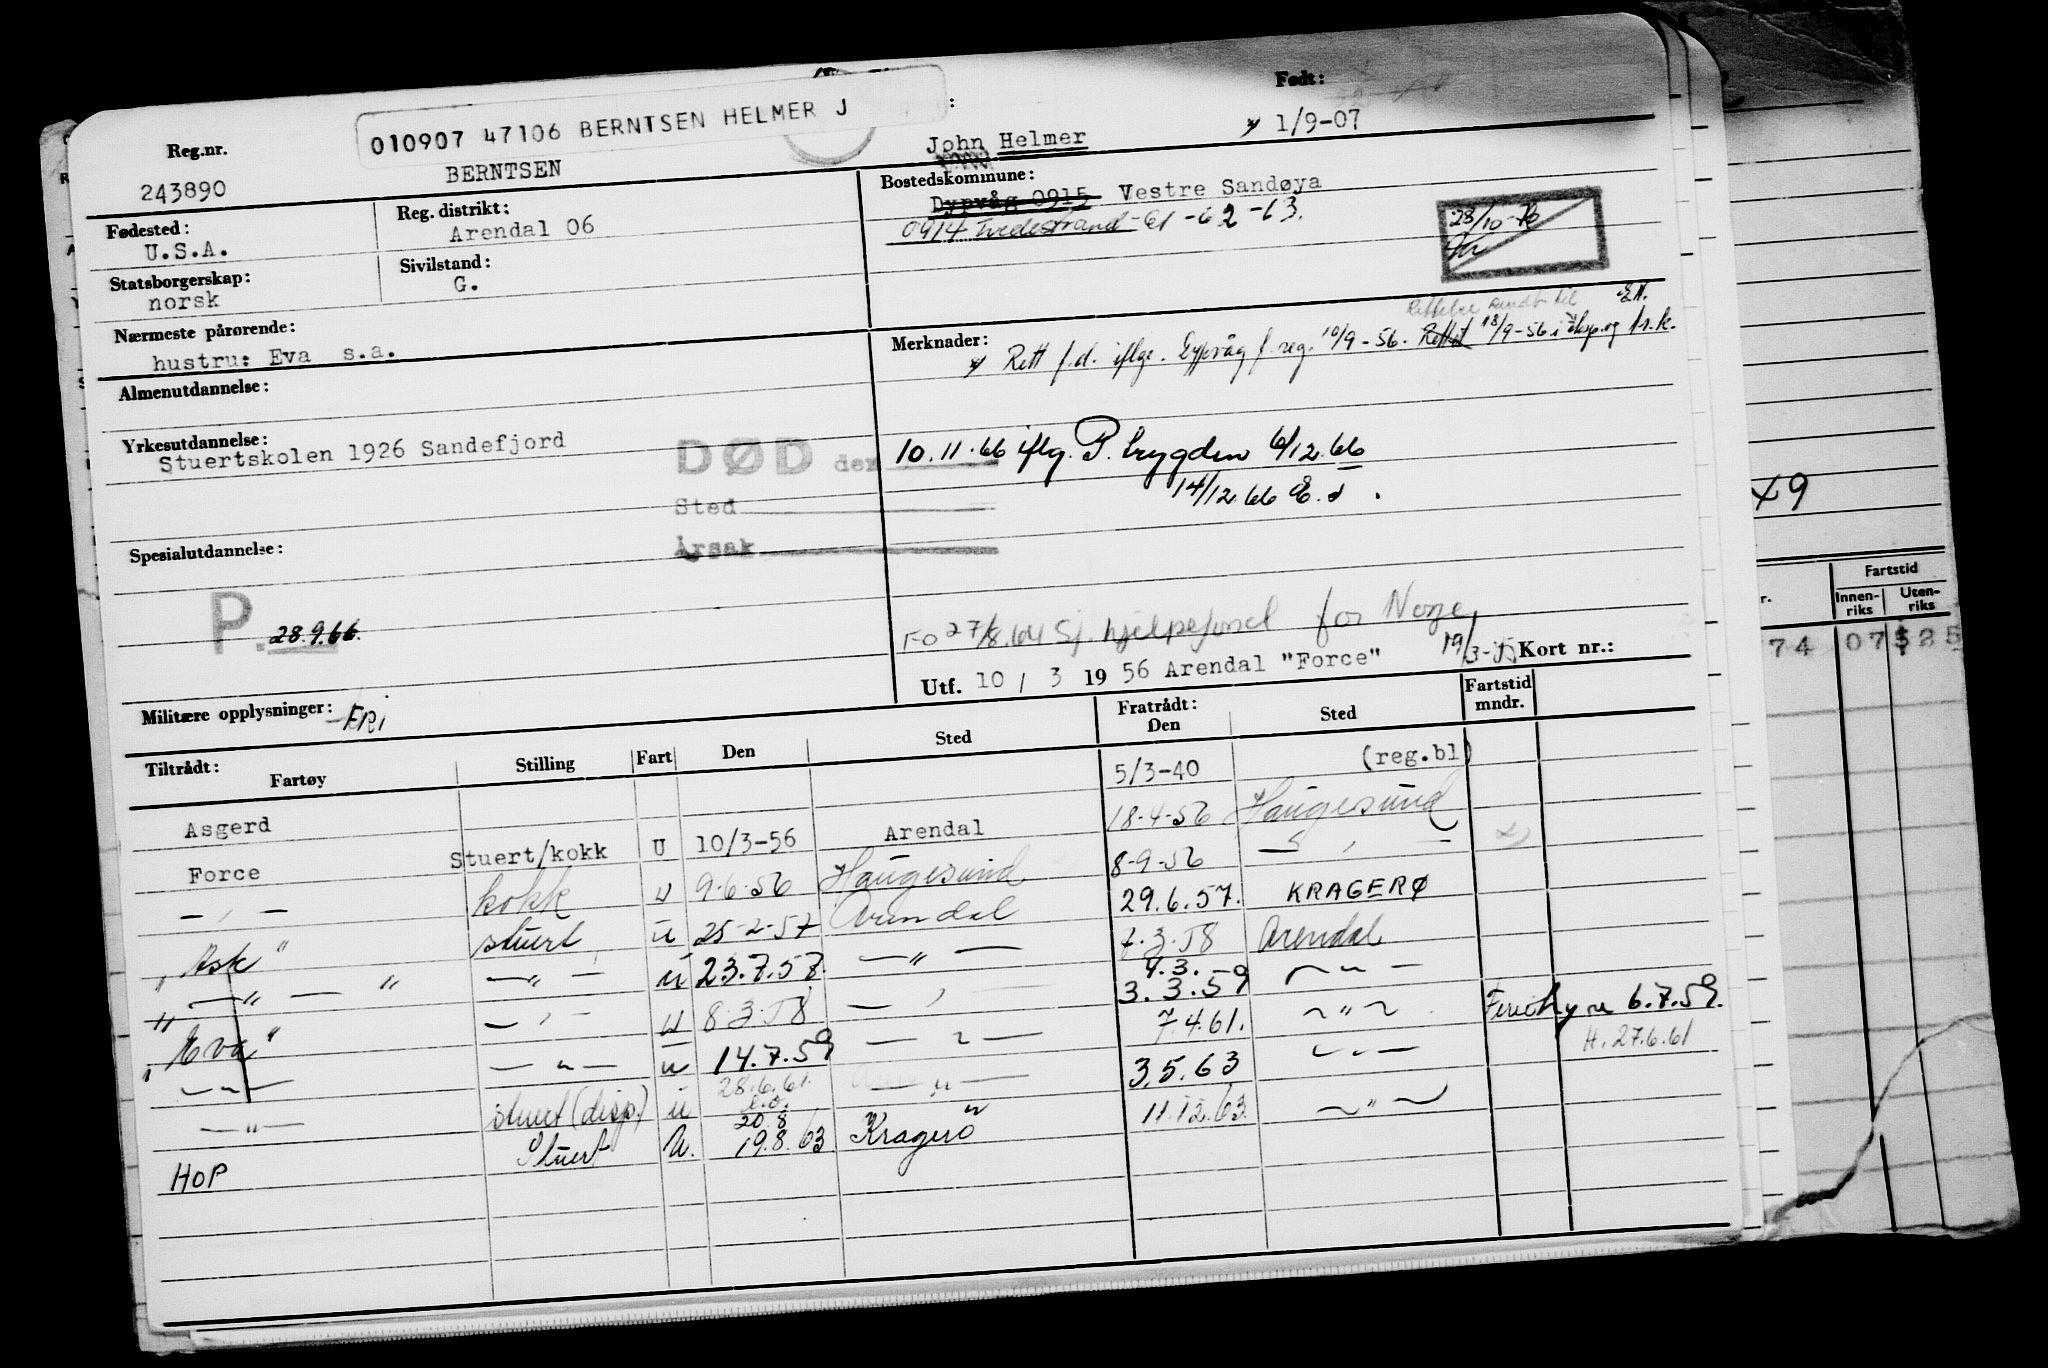 010907 47106 BERNTSEN HELMER J
Født:
Reg.nr.
243890
BERNTSEN
John Helmer
1/9-07
Fødested:
U.S.A.
Reg. distrikt:
Arendal 06
Bostedskommune:
Dypvåg 0915 Vestre Sandøya
0914 Tvedestrand -61-62-63.
23/10-76
Statsborgerskap:
norsk
Sivilstand:
G.
Nærmeste pårørende:
hustru: Eva s.a.
Merknader:
Rettelse sendt til EN.
Rett f.d. iflge. Dypvåg f.reg. 10/9-56. Rettet 18/9-56 i
Almenutdannelse:
Yrkesutdannelse:
Stuertskolen 1926 Sandefjord
DØD den 10.11.66 iflg. P. trygden 6/12.66
14/12.66
Sted
Årsak
Spesialutdannelse:
P. 28.9.66.
FO 27/8.64 Sj. hjelpefond for Norge
19/3-
Utf. 10 / 3 1956 Arendal "Force" Kort nr.:
Militære opplysninger: FRI
Tiltrådt:
Fartøy Stilling Fart Den Sted Fratrådt: Den Sted Fartstid mndr.
Asgerd 5/3-40 (reg.bl)
Force Stuert/kokk U 10/3-56 Arendal 18-4-56 Haugesund
— " — kokk U 9-6-56 Haugesund 8-9-56 — " —
"Ask" stuert u 25-2-57 Arendal 29.6.57. KRAGERØ
" — " — " — " — u 23.7.57. — " — 7.3.58 Arendal
"Eva" — " — u 8.3.58 — " — 4.3. 3.3.59 — " —
— " — — " — u 14.7.59 — " — 7.4.61. — " — 6.7.59.
— " — stuert (disp.) u 28.6.61. — " — 3.5.63 — " — H. 27.6.61
HOP Stuert U. 20.8 19.8.63 Kragerö 11.12.63. — " —
x9
Fartstid
Innen-riks Uten-riks
74 07